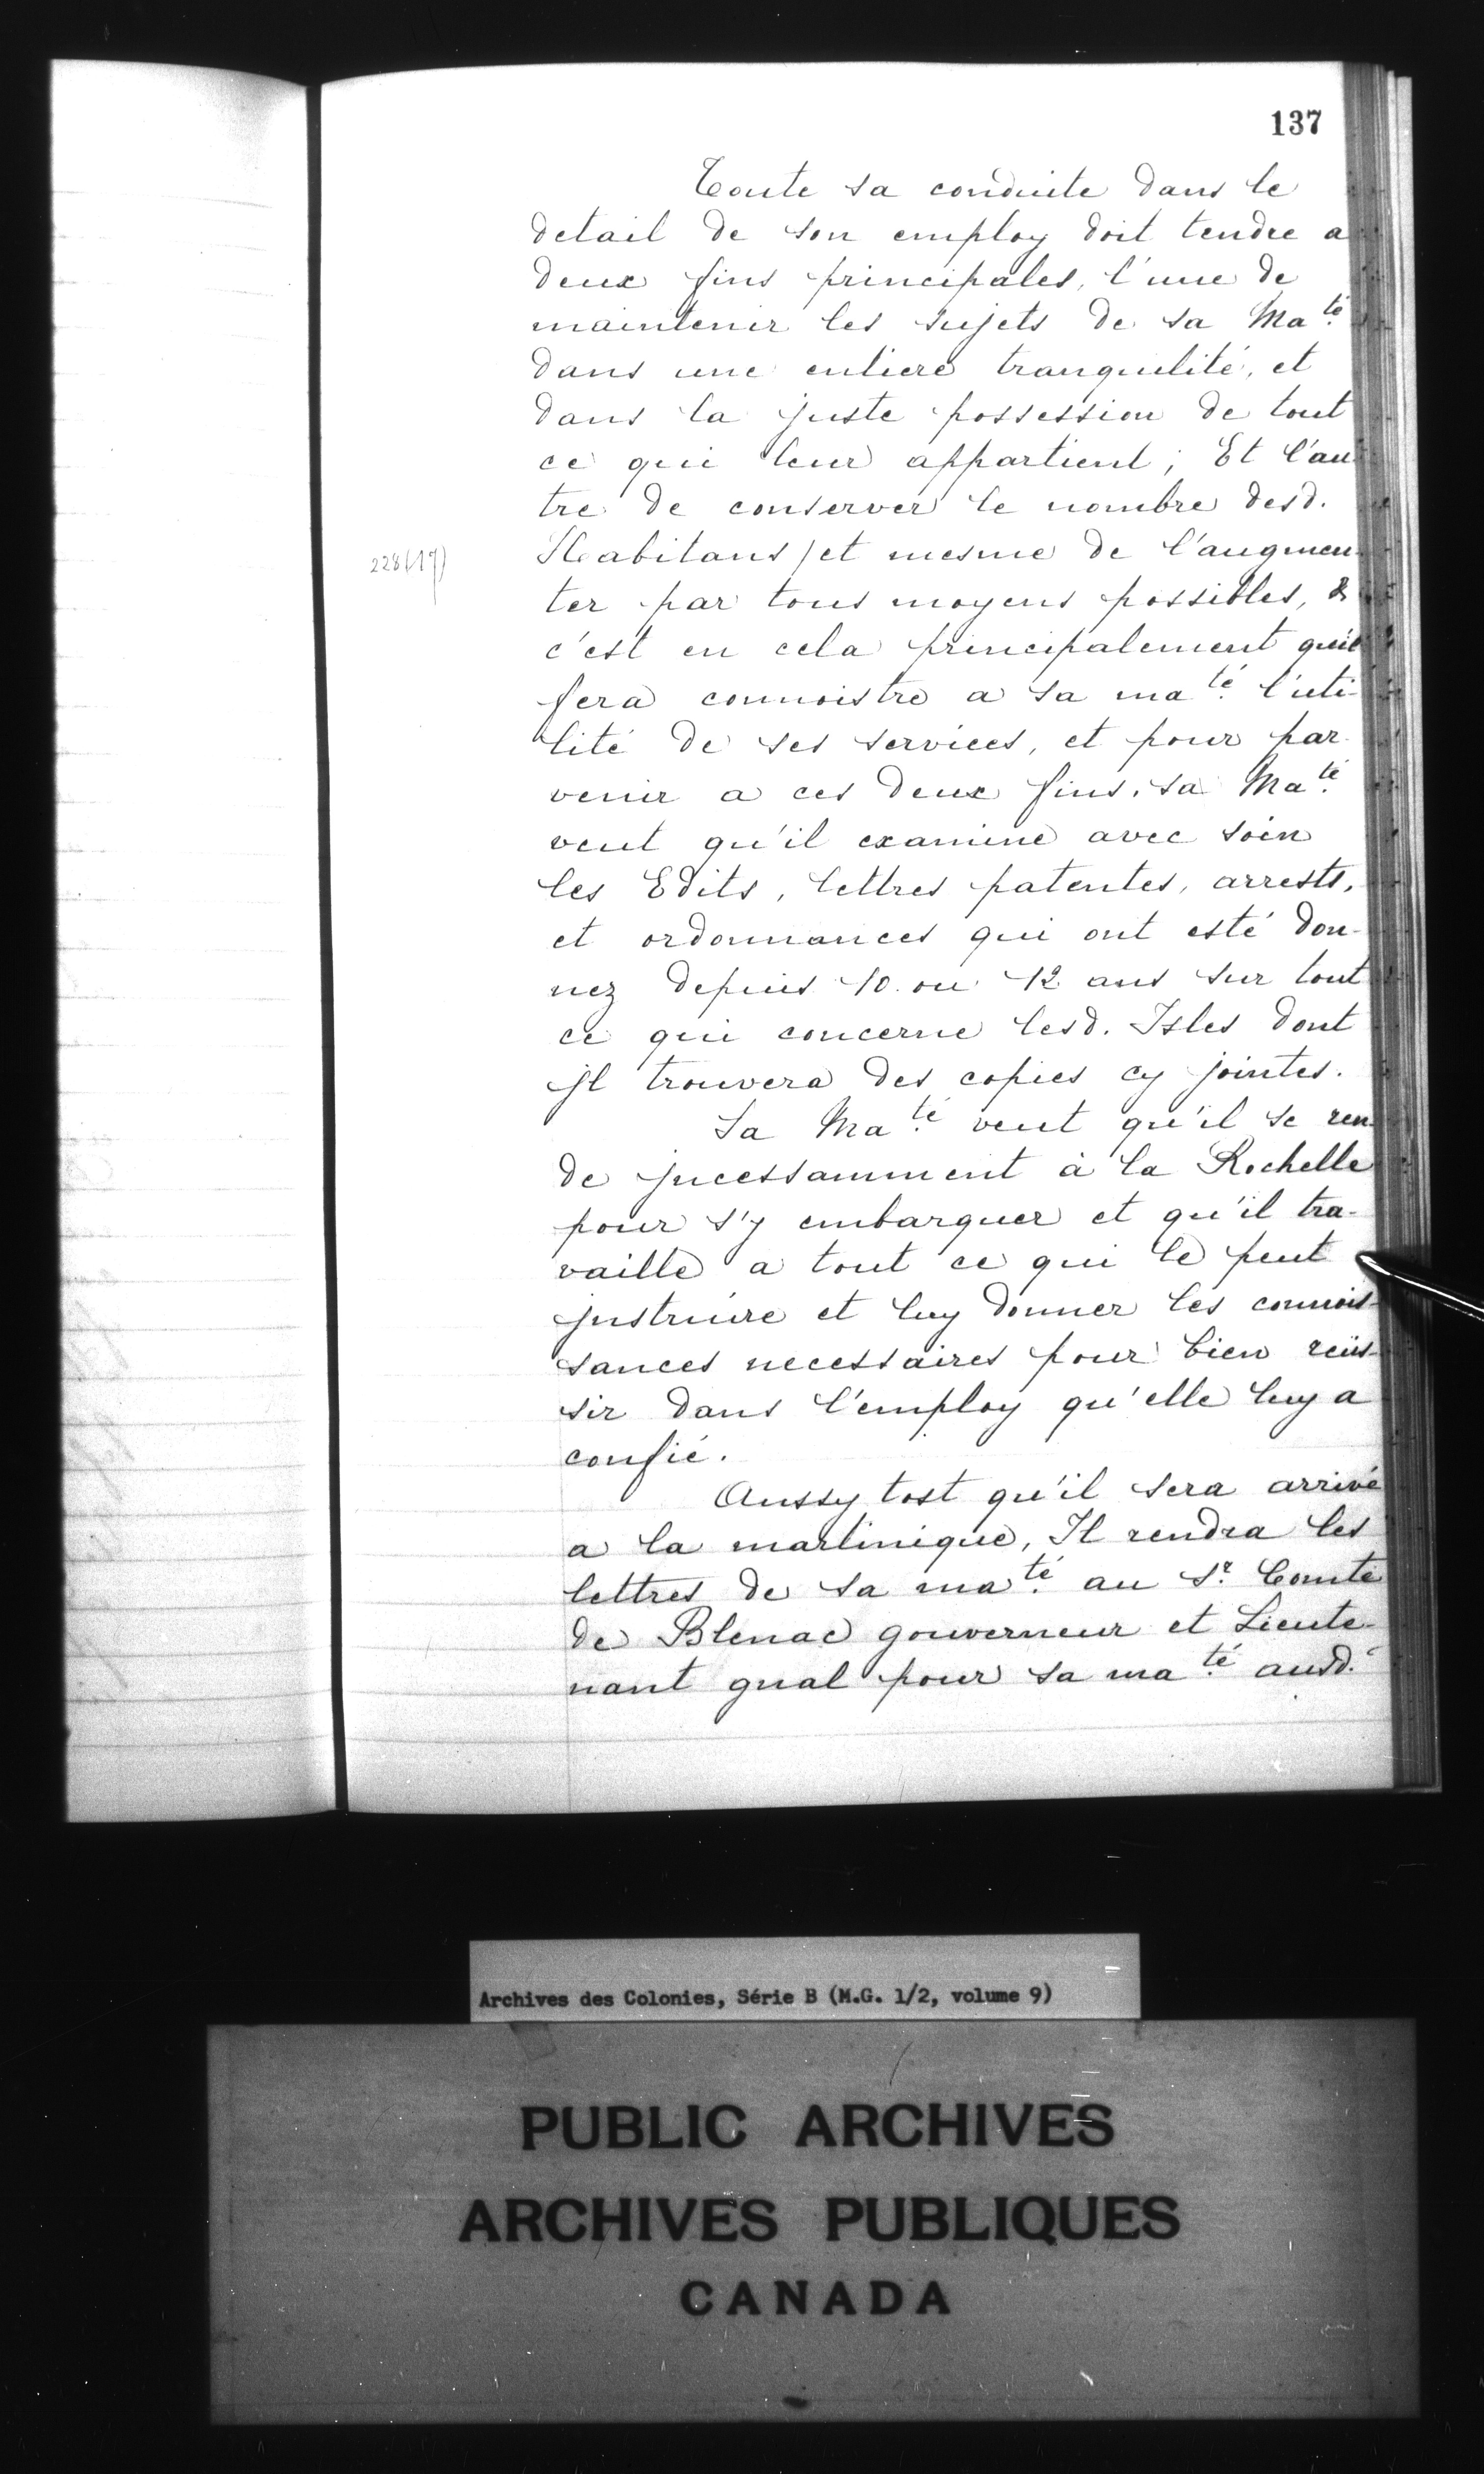 137
Toute sa conduite dans le
detail de son employ doit tendre a
deux fins principales, l'une de
maintenir les sujets de sa Maté
dans une entiere tranquilité, et
dans la juste possession de tout
ce qui leur appartient; Et l'au-
tre de conserver le nombre desd.
228(17) Habitans / et mesme de l'augmen-
ter par tous moyens possibles, &
c'est en cela principalement qu'il
fera connoistre a sa maté l'uti-
lité de ses services, et pour par-
venir a ces deux fins, sa Maté
veut qu'il examine avec soin
les Edits, lettres patentes, arrests,
et ordonnances qui ont esté don-
nez depuis 10. ou 12 ans sur tout
ce qui concerne lesd. Isles dont
jl trouvera des copies cy jointes.
Sa Maté veut qu'il se ren-
de jncessamment à la Rochelle
pour s'y embarquer et qu'il tra-
vaille a tout ce qui le peut
jnstruire et luy donner les connois-
sances necessaires pour bien reüs-
sir dans l'employ qu'elle luy a
confié.
Aussy tost qu'il sera arrivé
a la martinique, Il rendra les
lettres de sa maté au Sr. Comte
de Blenac gouverneur et Lieute-
nant gnal pour sa maté ausd.
Archives des Colonies, Série B (M.G. 1/2, volume 9)
PUBLIC ARCHIVES
ARCHIVES PUBLIQUES
CANADA